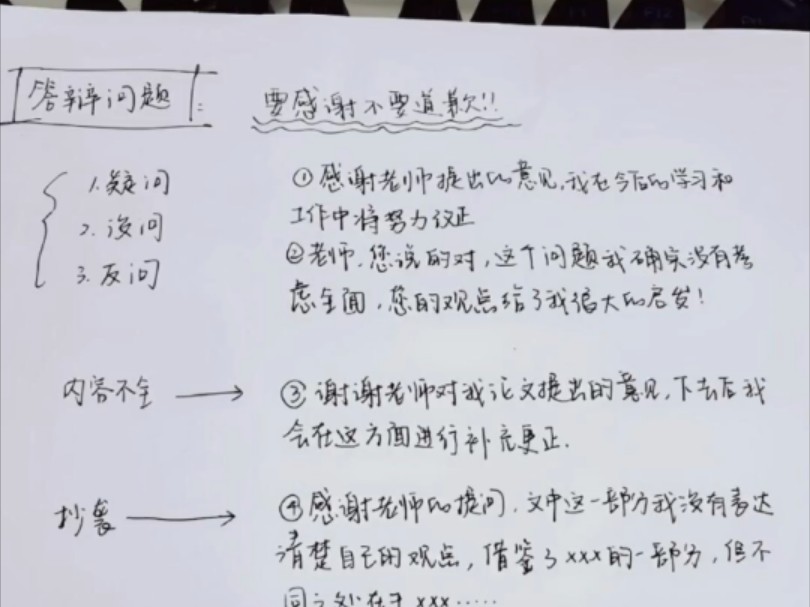 答辩问题： 要感谢不要道歉!!
1.疑问
2.设问
3.反问
①感谢老师提出的意见,我在今后的学习和
工作中将努力改正
②老师,您说的对,这个问题我确实没有考
虑全面,您的观点给了我很大的启发!
内容不全 → ③谢谢老师对我论文提出的意见,下去后我
会在这方面进行补充更正.
抄袭 → ④感谢老师的提问,文中这一部分我没有表达
清楚自己的观点,借鉴了xxx的一部分,但不
同之处在于xxx······